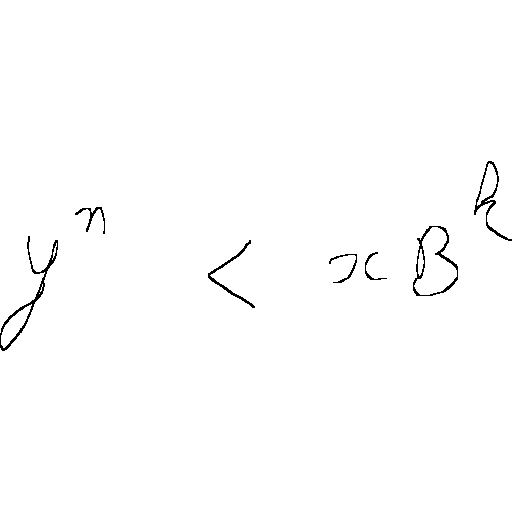 y^n < xB^k